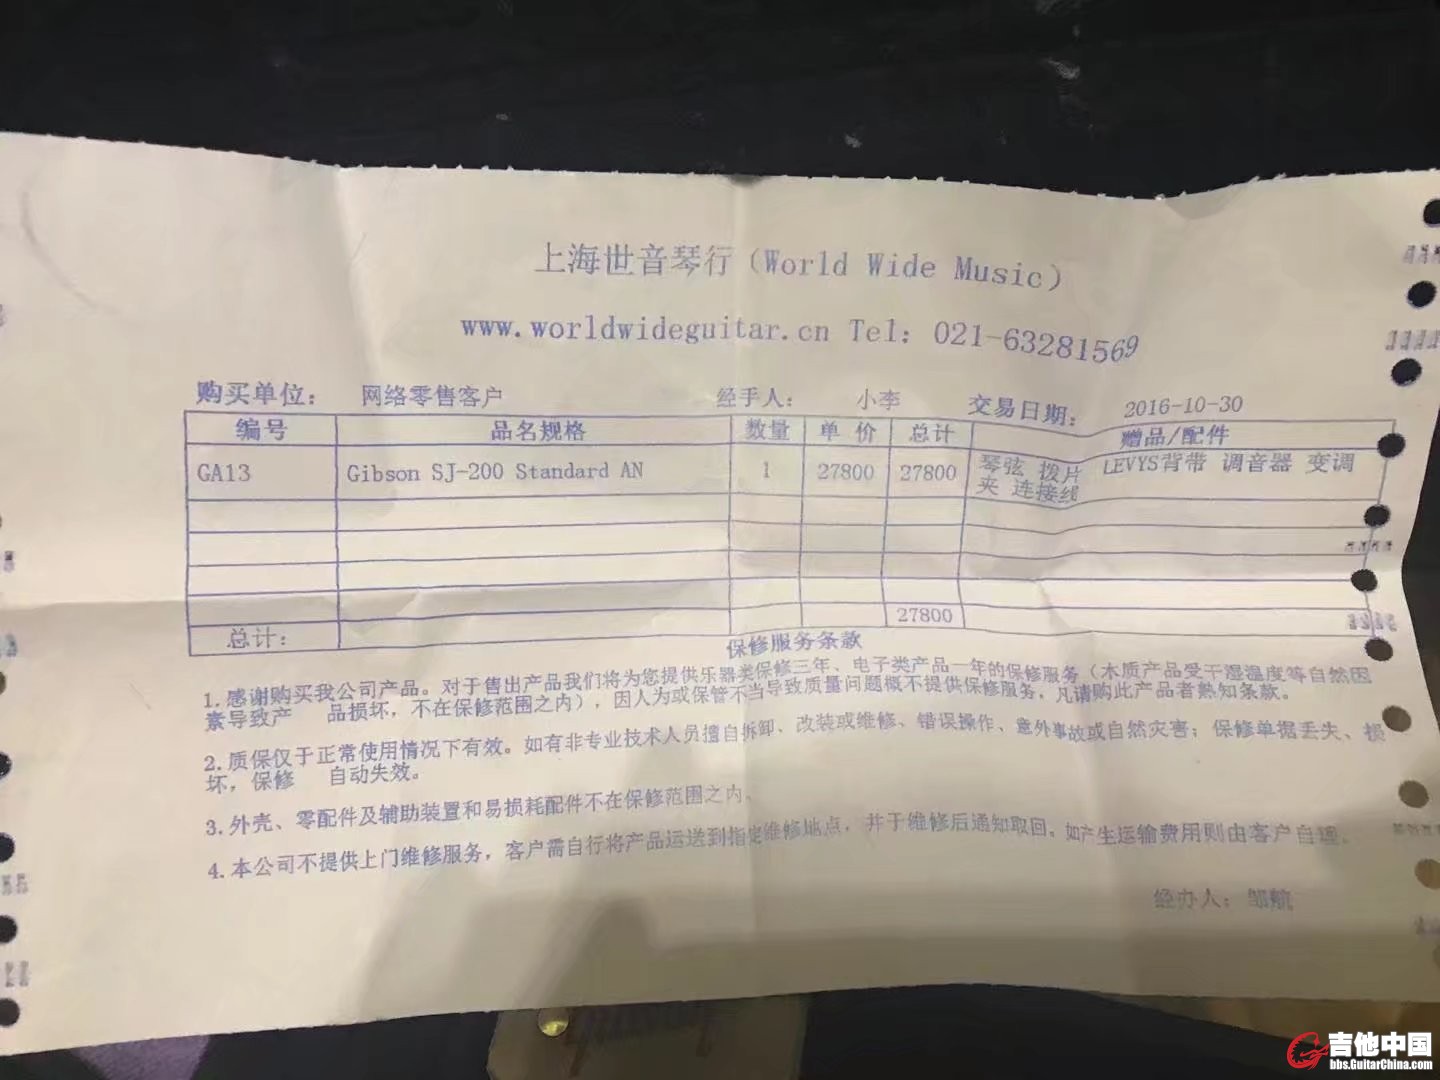 上海世音琴行（World Wide Music）
www.worldwideguitar.cn Tel：021-63281569
购买单位： 网络零售客户 经手人： 小李 交易日期： 2016-10-30
编号 品名规格 数量 单 价 总计 赠品/配件
GA13 Gibson SJ-200 Standard AN 1 27800 27800 琴弦 拨片 LEVYS背带 调音器 变调
夹 连接线
总计： 27800
保修服务条款
1.感谢购买我公司产品。对于售出产品我们将为您提供乐器类保修三年、电子类产品一年的保修服务（木质产品受干湿温度等自然因
素导致产 品损坏，不在保修范围之内），因人为或保管不当导致质量问题概不提供保修服务，凡请购此产品者熟知条款。
2.质保仅于正常使用情况下有效。如有非专业技术人员擅自拆卸、改装或维修、错误操作、意外事故或自然灾害；保修单据丢失、损
坏，保修 自动失效。
3.外壳、零配件及辅助装置和易损耗配件不在保修范围之内。
4.本公司不提供上门维修服务，客户需自行将产品运送到指定维修地点，并于维修后通知取回。如产生运输费用则由客户自理。
经办人：邹航
吉他中国
bbs.GuitarChina.com